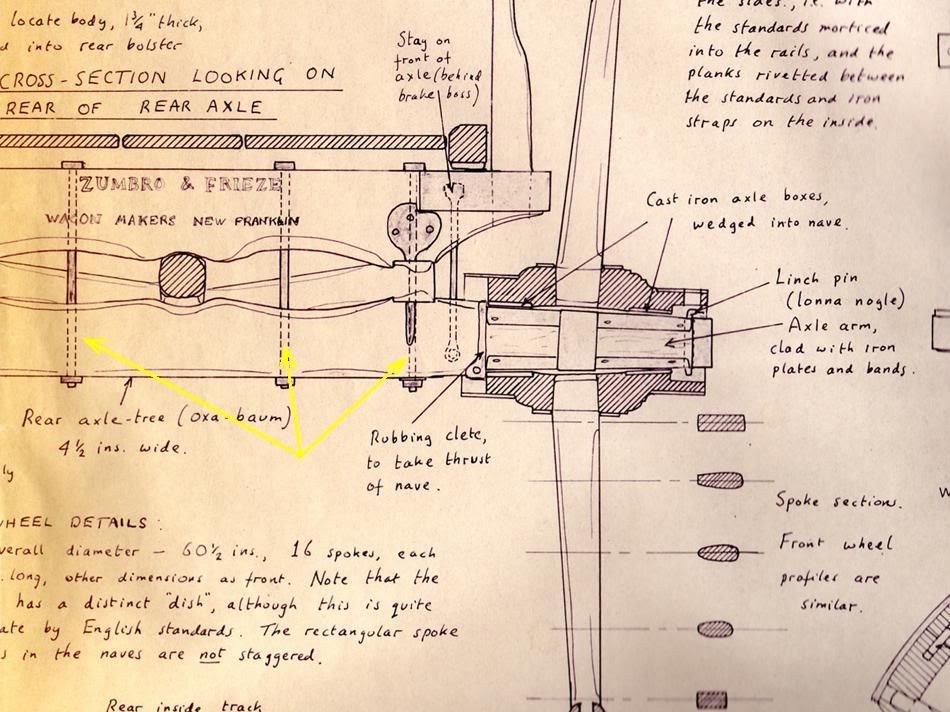 locate body, 1¾" thick,
d into rear bolster
CROSS-SECTION LOOKING ON
REAR OF REAR AXLE
Stay on
front of
axle (behind
brake boss)
the sides., i.e. with
the standards morticed
into the rails, and the
planks rivetted between
the standards and iron
straps on the inside.
ZUMBRO & FRIEZE
WAGON MAKERS NEW FRANKLIN
Cast iron axle boxes,
wedged into nave.
Linch pin
(lonna nogle)
Axle arm,
clad with iron
plates and bands.
Rear axle-tree (oxa-baum)
4½ ins. wide.
ly
Rubbing clete,
to take thrust
of nave.
WHEEL DETAILS:
verall diameter - 60½ ins., 16 spokes, each
. long, other dimensions as front. Note that the
has a distinct "dish", although this is quite
ate by English standards. The rectangular spoke
s in the naves are not staggered.
Spoke section.
Front wheel
profiles are
similar.
Rear inside track